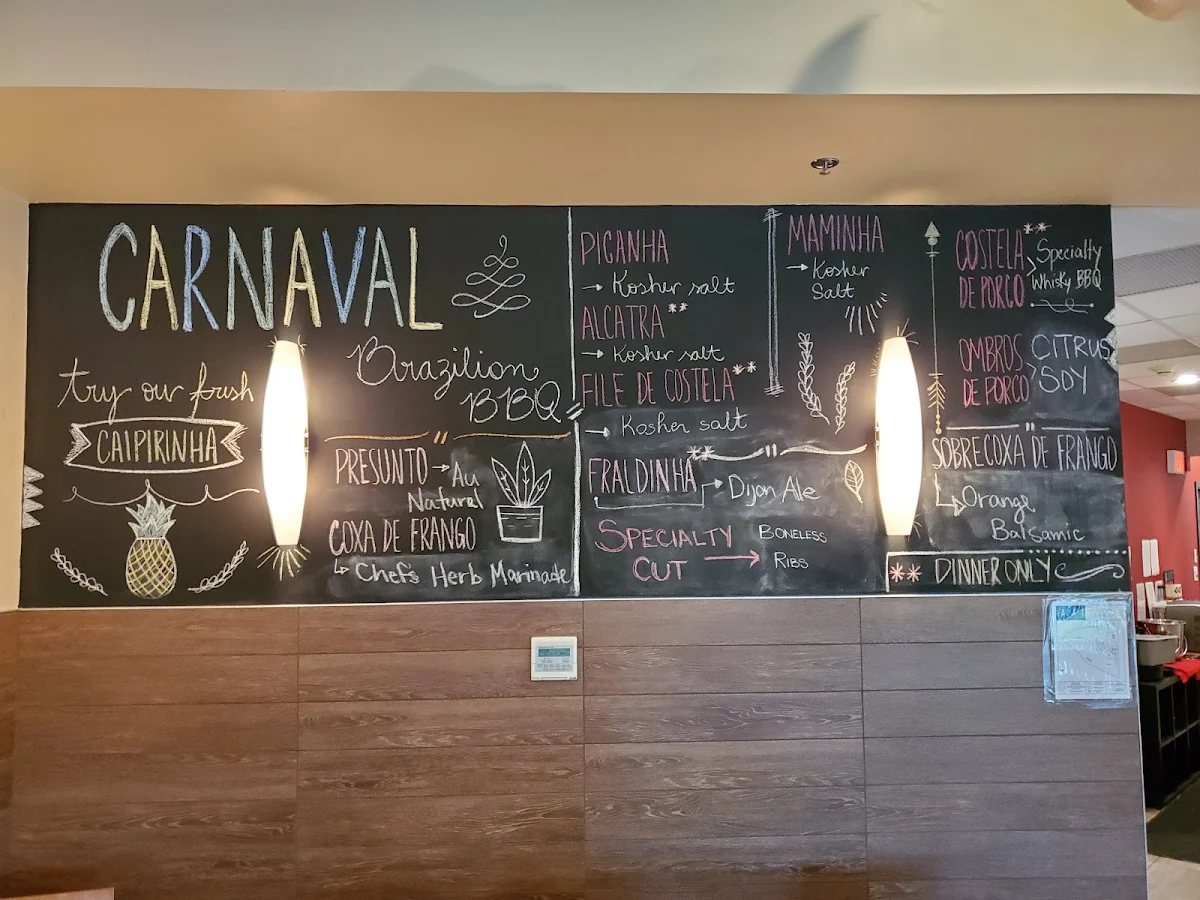 CARNAVAL
Brazilion
BBQ
try our fresh
CAIPIRINHA
PRESUNTO → Au
Natural
COXA DE FRANGO
Chef's Herb Marinade
PICANHA
→ Kosher salt
ALCATRA **
→ Kosher salt
FILE DE COSTELA **
→ Kosher salt
FRALDINHA ** → Dijon Ale
SPECIALTY
CUT → BONELESS
RIBS
MAMINHA
→ Kosher
Salt
COSTELA **
DE PORCO
Specialty
Whisky BBQ
OMBROS
DE PORCO
CITRUS
SOY
SOBRECOXA DE FRANGO
Orange
Balsamic
** DINNER ONLY